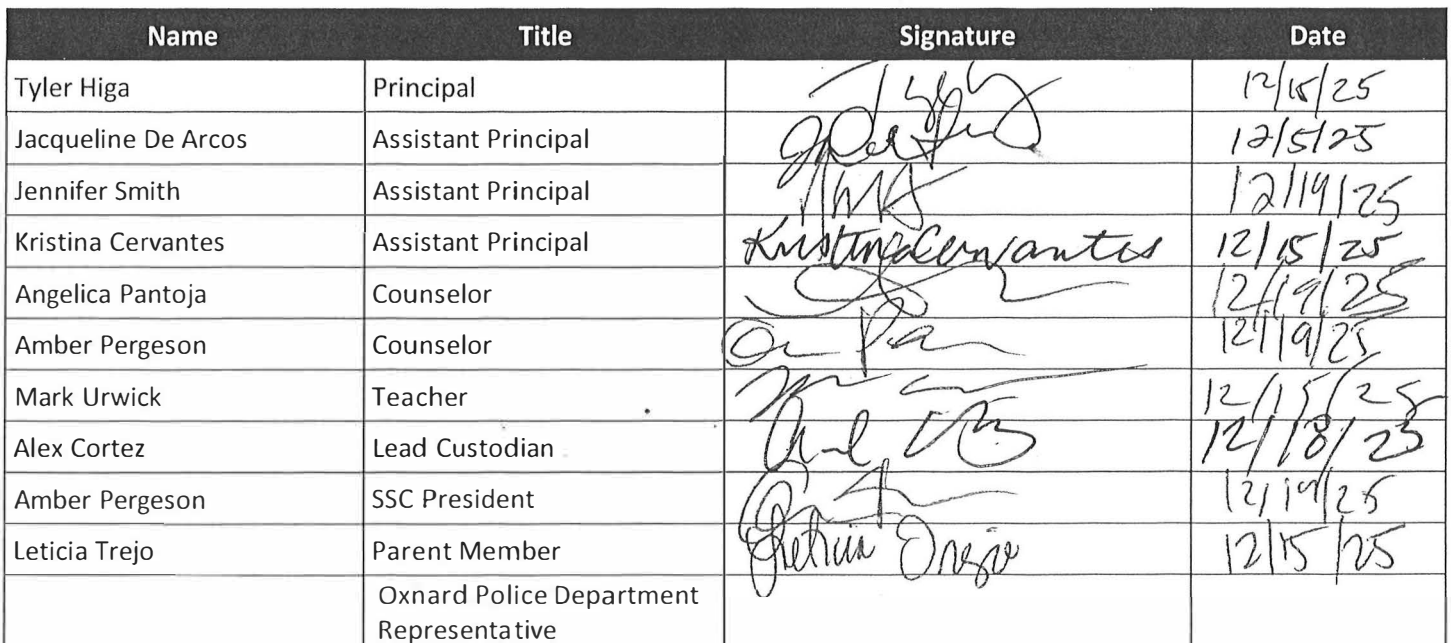 Name Title Signature Date
Tyler Higa Principal 12/15/25
Jacqueline De Arcos Assistant Principal 12/5/25
Jennifer Smith Assistant Principal 12/19/25
Kristina Cervantes Assistant Principal Kristina Cervantes 12/15/25
Angelica Pantoja Counselor 12/19/25
Amber Pergeson Counselor 12/19/25
Mark Urwick Teacher 12/15/25
Alex Cortez Lead Custodian 12/18/25
Amber Pergeson SSC President 12/19/25
Leticia Trejo Parent Member Leticia Trejo 12/15/25
Oxnard Police Department
Representative